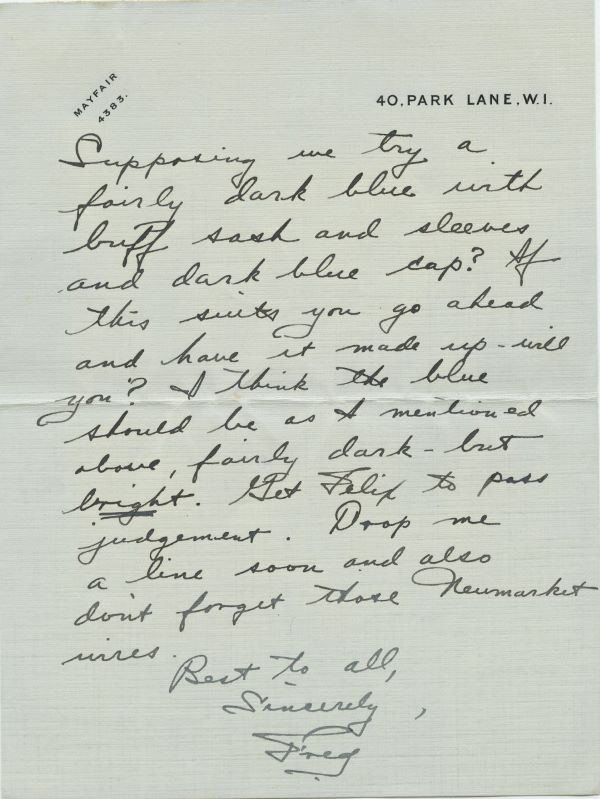 MAYFAIR
4383.
40, PARK LANE, W.1.
Supposing we try a
fairly dark blue with
buff sash and sleeves
and dark blue cap? If
this suits you go ahead
and have it made up - will
you? I think the blue
should be as I mentioned
above, fairly dark - but
bright. Get Felix to pass
judgement. Drop me
a line soon and also
don't forget those Newmarket
wires.
Best to all,
Sincerely,
Fred